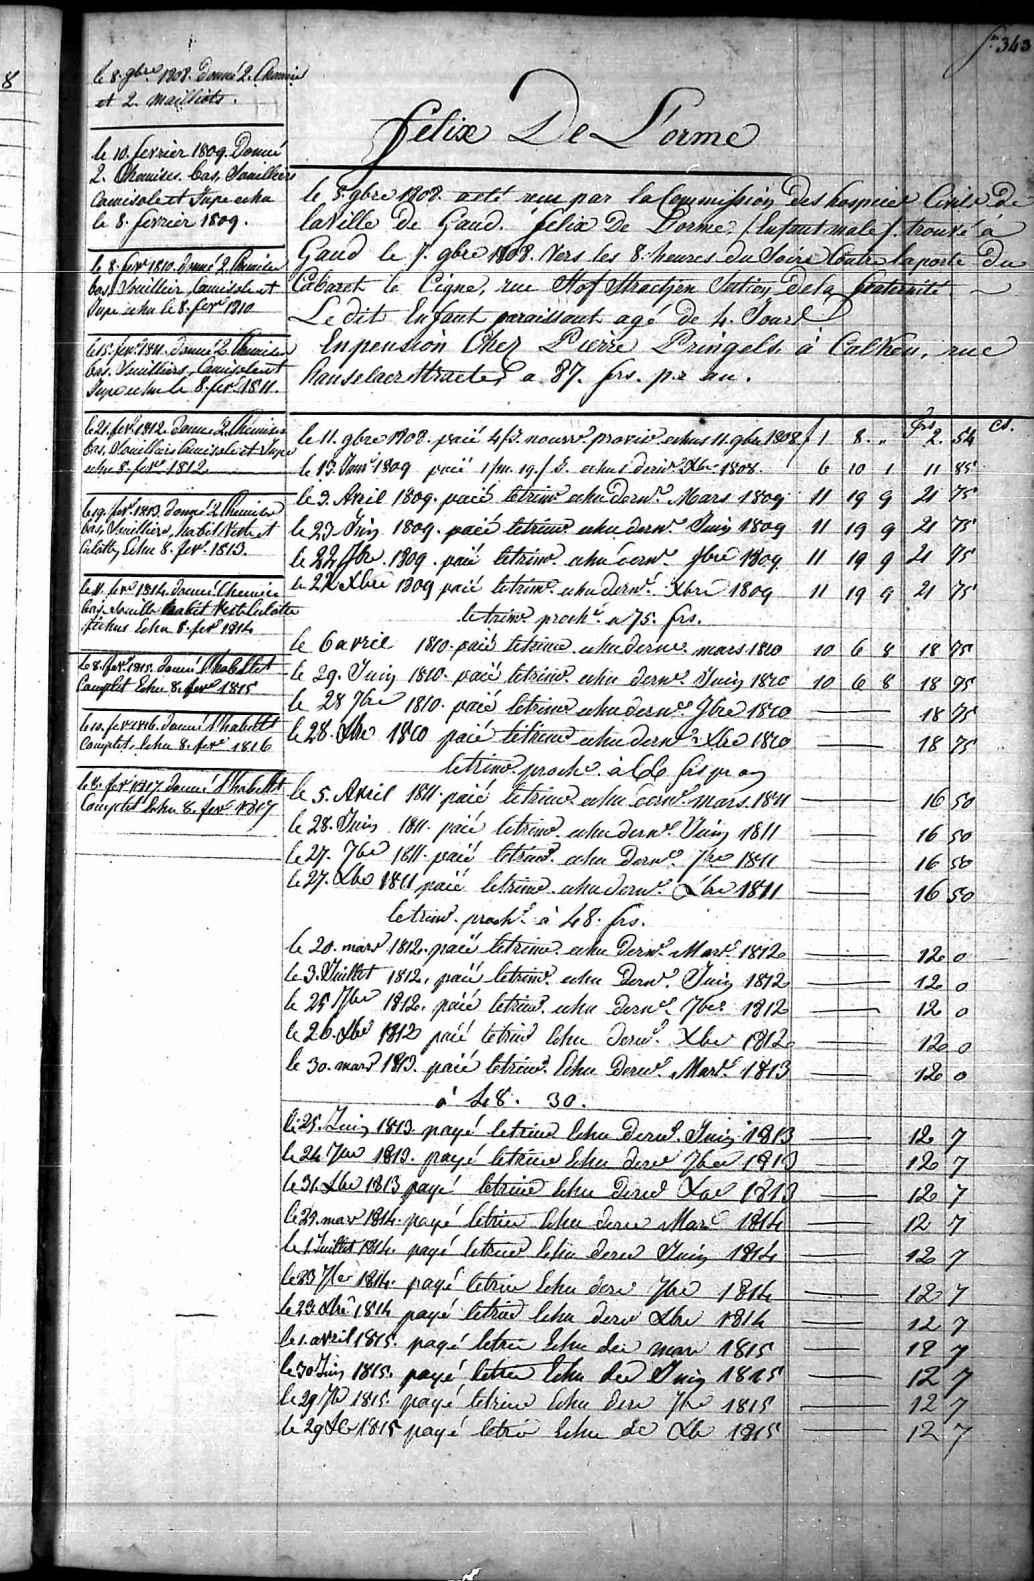 fo 343
8
le 8. 9bre 1808. Donné 2. Chemises
et 2. Mailliots.
le 10. fevrier 1809. Donné
2. Chemises. bas, Souilliers
Camisole et Jupe echu
le 8. fevrier 1809.
le 8. fevr 1810. donné 2. Chemises
bas, Souilliers, Camisole et
Jupe echu le 8. fevr 1810
le 15. fevr 1811. donné 2. Chemises
bas. Souilliers, Camisole et
Jupe echu le 8. fevr 1811.
le 21. fevr 1812. donné 2. Chemises
bas, Souilliers Camisole et Jupe
echu 8. fevr 1812
le 19. fevr 1813. donné 2. Chemises
bas, Souilliers, habit Veste et
Culotte, Echu 8. fevr. 1813.
le 11. fevr 1814. donné Chemise
bas, Souille habit Veste Culotte
fichus Echu 8. fevr 1814
le 8. fevr. 1815. donné l'habillet
Complet Echu 8. fevr 1815
le 10. fevr 1816. donné l'habillet
Complet, Echu 8. fevr 1816
le 8. fevr 1817 donné l'habillet
Complet Echu 8. fevr 1817
Felix De L'orme
le 8. 9bre 1808. a eté reçu par la Commission des hospices Civils de
la Ville de Gand. felix De L'orme. (Enfant male) trouvé à
Gand le 7. 9bre 1808. Vers les 8. heures du Soir Contre la porte du
Cabaret le Cigne, rue Hof Straetjen Section De la fraternité
Le dit Enfant paraissant agé de 4. Jours
En pension Chez Pierre Pringels. à Calken, rue
hanselaer Straete, a 87. frs. pr. an.
frs cs.
le 11. 9bre 1808. paié 4 js. nourre. provis. echus 11. 9bre 1808 f 1 8 „ 2. 54
le 13. Janr 1809 paié 1 m. 19. j. S. echus dernr Xbre 1808. 6 10 1 11 85
le 3. Avril 1809. paié le trimr. echu dernr. Mars 1809 11 19 9 21 75
le 23 Juin 1809. paié le trimr. echu dernr. Juin 1809 11 19 9 21 75
le 22 7bre 1809. paié le trimr. echu dernr. 7bre 1809 11 19 9 21 75
le 22 Xbre 1809 paié le trimr. echu dernr. Xbre 1809 11 19 9 21 75
le trimr. proch. a 75. frs.
le 6 avril 1810. paié le trimre echu dernre mars 1810 10 6 8 18 75
le 29. Juin 1810. paié le trimre echu dernr. Juin 1810 10 6 8 18 75
le 28 7bre 1810. paié le trimre echu dernr. 7bre 1810 18 75
le 28. Xbre 1810 paié le trimre echu dernr. Xbre 1810 18 75
le trimr. proche. à 66 frs pr an
le 5. Avril 1811. paié le trimre echu dernr. mars 1811 16 50
le 28. Juin 1811. paié le trimr. echu dernr. Juin 1811 16 50
le 27. 7bre 1811. paié le trimr. echu dernr. 7bre 1811 16 50
le 27. Xbre 1811 paié le trimr. echu dernr. Xbre 1811 16 50
le trimr. proch. à 48. frs.
le 20. mars 1812. paié le trimr. echu dernr. Mars 1812 12 0
le 3. Juillet 1812. paié le trimr. echu dernr. Juin 1812 12 0
le 25 7bre 1812. paié le trimr. echu dernr. 7bre 1812 12 0
le 26. Xbre 1812 paié le trimr Echu dernr. Xbre 1812 12 0
le 30. mars 1813. paié le trimr. Echu dernr. Mars 1813 12 0
à 48. 30.
le 25. Juin 1813 payé le trimre Echu dernr. Juin 1813 12 7
le 24 7bre 1813. payé le trimre Echu derer 7bre 1813 12 7
le 31. Xbre 1813 payé le trimre Echu derer Xbre 1813 12 7
le 29. mars 1814. payé le trimre Echu derer Mars 1814 12 7
le 1 Juillet 1814. payé le trimre Echu derer Juin 1814 12 7
le 23 7bre 1814. payé le trimre Echu derer 7bre 1814 12 7
le 23. Xbre 1814 payé le trimre Echu derer Xbre 1814 12 7
le 1. avril 1815. payé le trim Echu der mars 1815 12 7
le 30 Juin 1815. payé le trim Echu der Juin 1815 12 7
le 29 7bre 1815. payé le trimre Echu dere 7bre 1815 12 7
le 29 Xbre 1815 payé le trim Echu de Xbre 1815 12 7